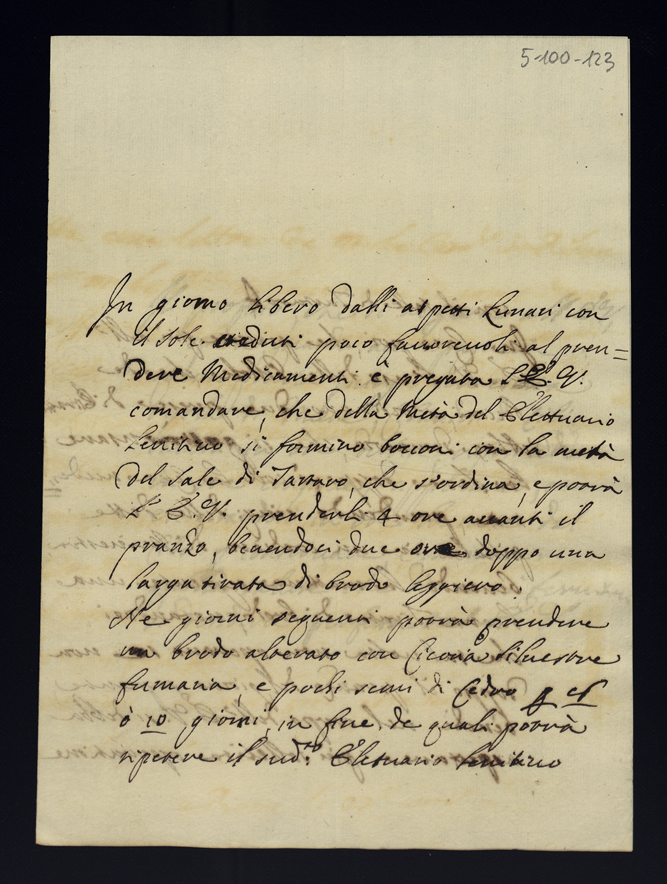 5-100-123
In giorno libero dalli aspetti Lunari con
il sole creduti poco favorevoli al pren=
dere Medicamenti è pregata L'E. V.
comandare, che della metà del Elettuario
Lenitivo si formino bocconi con la metà
del Sale di Tartaro, che s'ordina, e potrà
L'E. V. prenderli 4 ore avanti il
pranzo, bevendoci due ore doppo una
larga tirata di brodo leggiero.
Ne giorni seguenti potrà prendere
un brodo alterato con Cicoria silvestre
fumaria, e pochi semi di Cedro p
ò 10 giorni, in fine de quali potrà
ripetere il sud.º Elettuario lenitivo